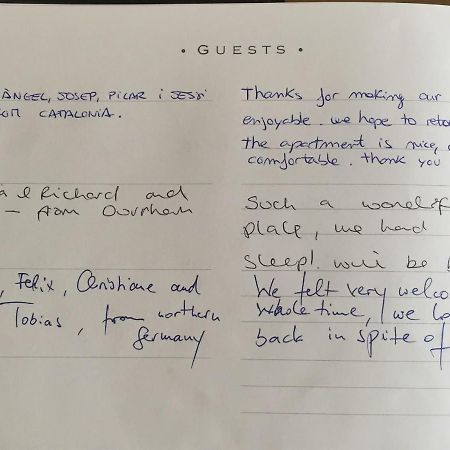 • GUESTS •
ÀNGEL, JOSEP, PILAR i JESSI
CATALONIA.
Thanks for making our
enjoyable. we hope to reto
the apartment is nice,
comfortable. thank you
& Richard and
– from Durham
Such a
place, we had
sleep! we'll be b
, Felix, Christiane and
Tobias, from northern
Germany
We felt very welco
whole time, we lo
back in spite of